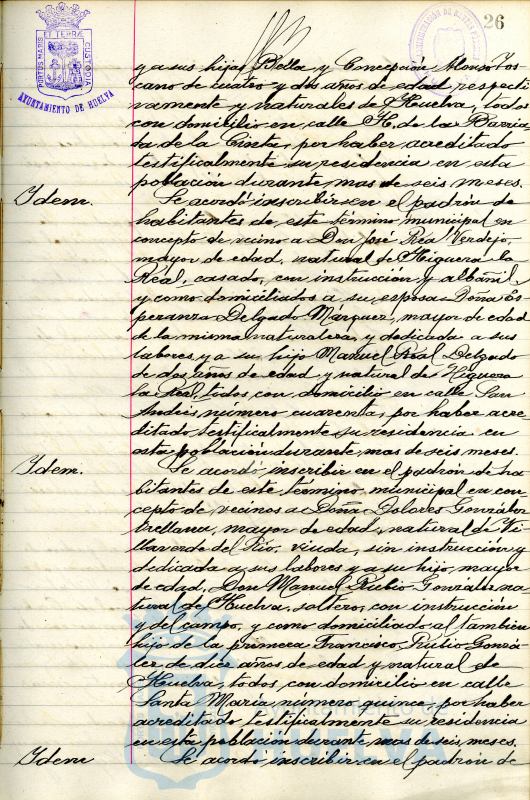 26
PORTUS MARIS ET TERRÆ CUSTODIA
AYUNTAMIENTO DE HUELVA
y a sus hijas Bella y Concepción Alonso Tos-
cano de cuatro y dos años de edad respecti-
vamente y naturales de Huelva, todos
con domicilio en calle H. de la Barria-
da de la Cinta, por haber acreditado
testificalmente su residencia en esta
población durante mas de seis meses.
Idem. Se acordó inscribir en el padrón de
habitantes de este término municipal en
concepto de vecino a Don José Real Verdejo,
mayor de edad, natural de Higuera la
Real, casado, con instrucción y albañil,
y como domiciliados a su esposa Doña Es-
peranza Delgado Márquez, mayor de edad
de la misma naturaleza, y dedicada a sus
labores, y a su hijo Manuel Real Delgado
de dos años de edad y natural de Higuera
la Real, todos con domicilio en calle San
Andrés número cuarenta, por haber acre-
ditado testificalmente su residencia en
esta población durante mas de seis meses.
Idem. Se acordó inscribir en el padrón de ha-
bitantes de este término municipal en con-
cepto de vecinos a Doña Dolores González
Orellana, mayor de edad, natural de Vi-
llaverde del Río, viuda, sin instrucción y
dedicada a sus labores y a su hijo, mayor
de edad, Don Manuel Rubio González na-
tural de Huelva, soltero, con instrucción
y del campo, y como domiciliado al tambien
hijo de la primera Francisco Rubio Gonzá-
lez de diez años de edad y natural de
Huelva, todos con domicilio en calle
Santa María número quince, por haber
acreditado testificalmente su residencia
en esta población durante mas de seis meses.
Idem Se acordó inscribir en el padrón de
HUELVA